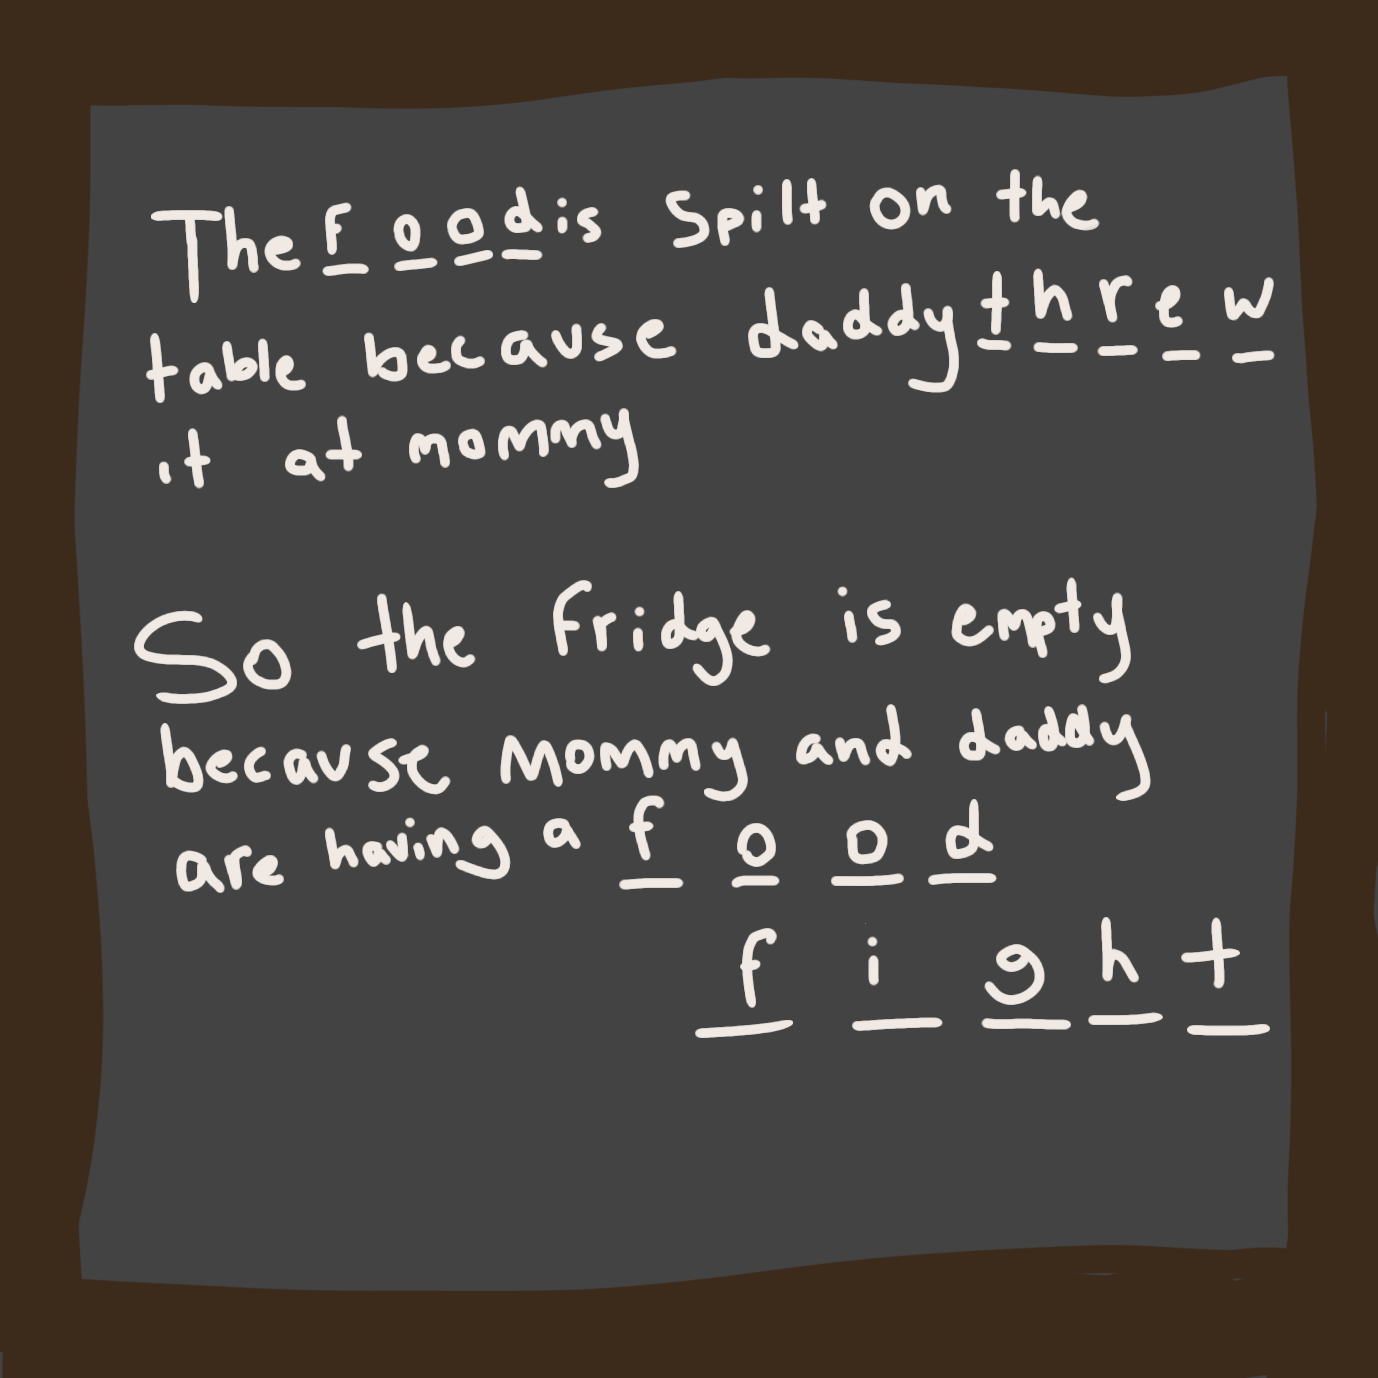 The food is Spilt on the
table because daddy threw
it at mommy
So the fridge is empty
because mommy and daddy
are having a food
fight